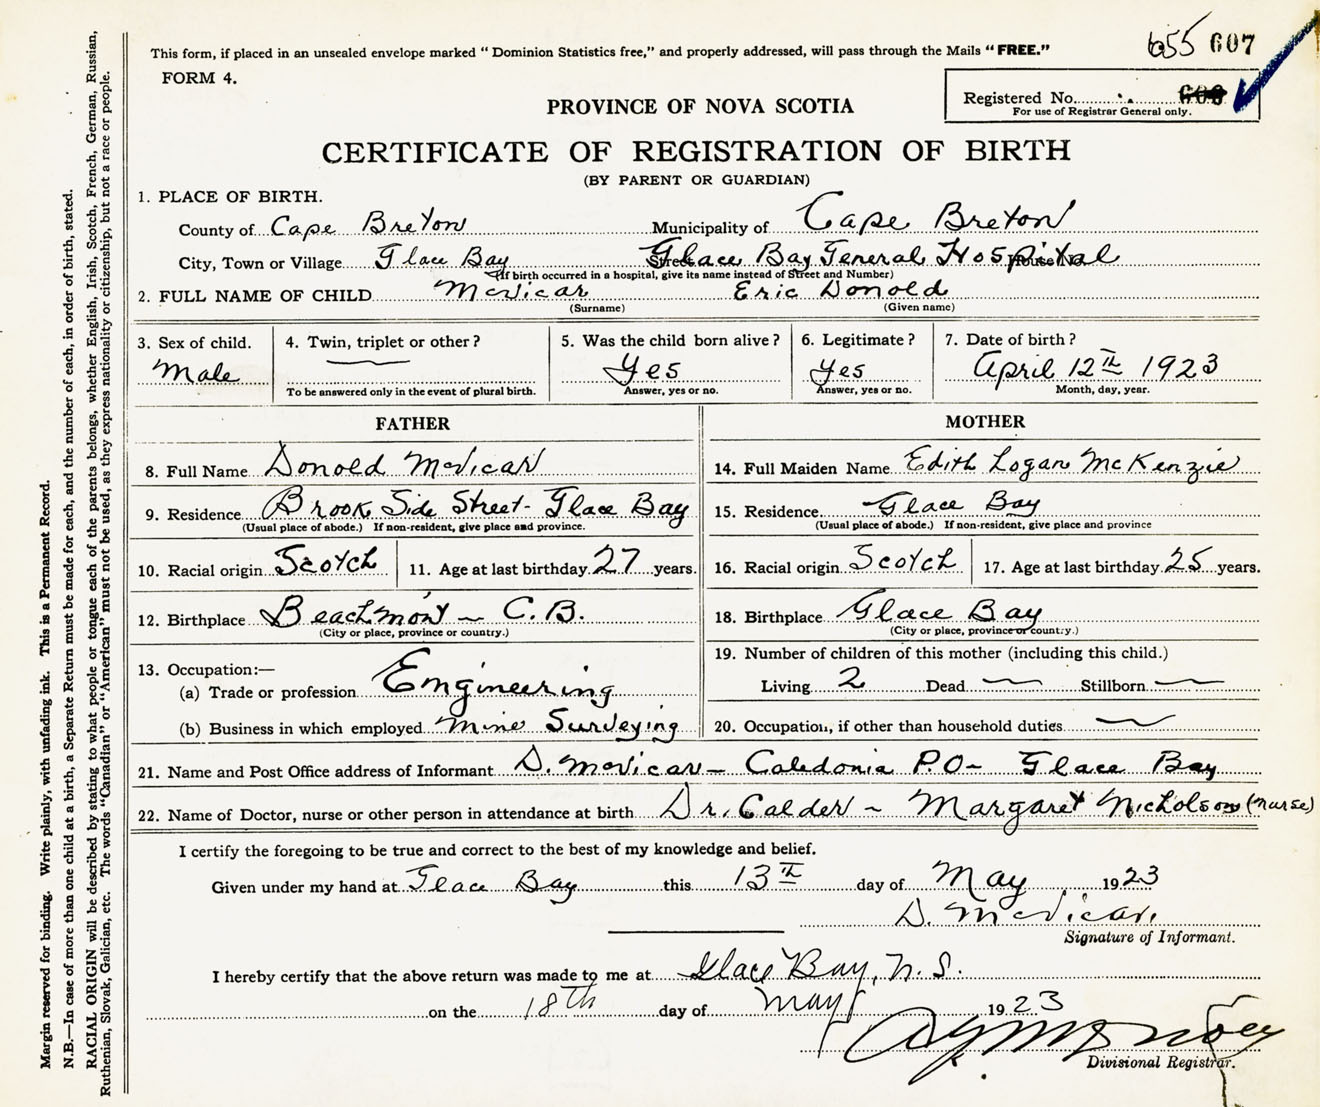 This form, if placed in an unsealed envelope marked "Dominion Statistics free," and properly addressed, will pass through the Mails "FREE."
655 607
FORM 4.
Registered No.
For use of Registrar General only.
PROVINCE OF NOVA SCOTIA
CERTIFICATE OF REGISTRATION OF BIRTH
(BY PARENT OR GUARDIAN)
1. PLACE OF BIRTH.
County of Cape Breton Municipality of Cape Breton
City, Town or Village Glace Bay Street Glace Bay General Hospital House No.
(If birth occurred in a hospital, give its name instead of Street and Number)
2. FULL NAME OF CHILD McVicar Eric Donald
(Surname) (Given name)
3. Sex of child. 4. Twin, triplet or other? 5. Was the child born alive? 6. Legitimate? 7. Date of birth?
Male Yes Yes April 12th 1923
To be answered only in the event of plural birth. Answer, yes or no. Answer, yes or no. Month, day, year.
FATHER MOTHER
8. Full Name Donald McVicar 14. Full Maiden Name Edith Logan McKenzie
9. Residence Brook Side Street - Glace Bay 15. Residence Glace Bay
(Usual place of abode.) If non-resident, give place and province. (Usual place of abode.) If non-resident, give place and province
10. Racial origin Scotch 11. Age at last birthday 27 years. 16. Racial origin Scotch 17. Age at last birthday 25 years.
12. Birthplace Beachmont - C.B. 18. Birthplace Glace Bay
(City or place, province or country.) (City or place, province or country.)
13. Occupation:— 19. Number of children of this mother (including this child.)
(a) Trade or profession Engineering Living 2 Dead — Stillborn —
(b) Business in which employed Mine Surveying 20. Occupation, if other than household duties —
21. Name and Post Office address of Informant D. McVicar - Caledonia P.O - Glace Bay
22. Name of Doctor, nurse or other person in attendance at birth Dr. Calder - Margaret Nicholson (nurse)
I certify the foregoing to be true and correct to the best of my knowledge and belief.
Given under my hand at Glace Bay this 13th day of May 1923
D. McVicar.
Signature of Informant.
I hereby certify that the above return was made to me at Glace Bay, N.S.
on the 18th day of May 1923
Divisional Registrar.
Margin reserved for binding. Write plainly, with unfading ink. This is a Permanent Record.
N.B.—In case of more than one child at a birth, a Separate Return must be made for each, and the number of each, in order of birth, stated.
RACIAL ORIGIN will be described by stating to what people or tongue each of the parents belongs, whether English, Irish, Scotch, French, German, Russian,
Ruthenian, Slovak, Galician, etc. The words "Canadian" or "American" must not be used, as they express nationality or citizenship, but not a race or people.